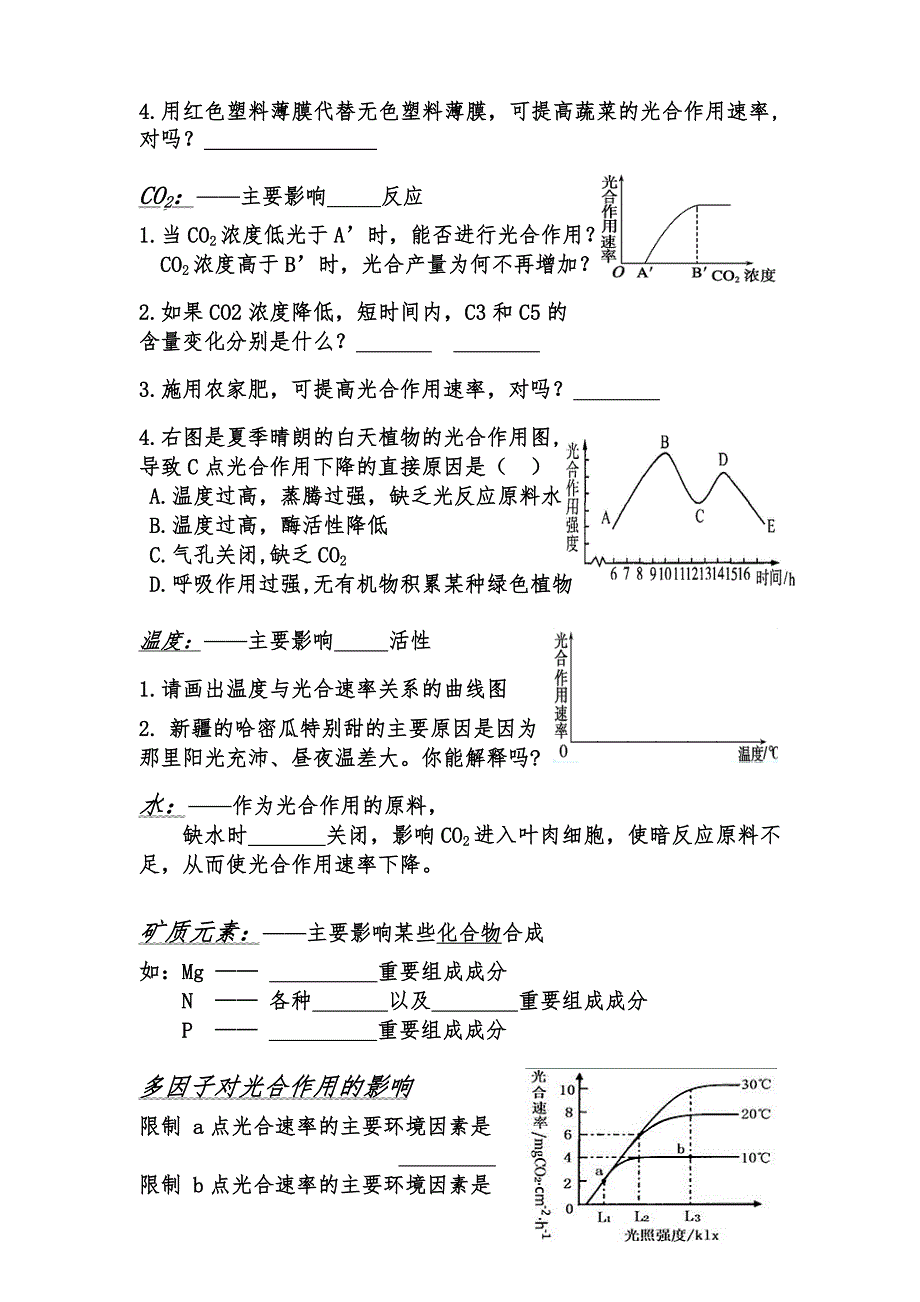 4.用红色塑料薄膜代替无色塑料薄膜，可提高蔬菜的光合作用速率，
对吗？
CO₂：——主要影响_____反应
1.当CO₂浓度低光于A′时，能否进行光合作用？
CO₂浓度高于B′时，光合产量为何不再增加？
光合作用速率
O A′ B′ CO₂浓度
2.如果CO2浓度降低，短时间内，C3和C5的
含量变化分别是什么？_______ ________
3.施用农家肥，可提高光合作用速率，对吗？________
4.右图是夏季晴朗的白天植物的光合作用图，
导致C点光合作用下降的直接原因是（ ）
A.温度过高，蒸腾过强，缺乏光反应原料水
B.温度过高，酶活性降低
C.气孔关闭,缺乏CO₂
D.呼吸作用过强,无有机物积累某种绿色植物
光合作用强度
A B C D E
6 7 8 9 10 11 12 13 14 15 16 时间/h
温度：——主要影响_____活性
1.请画出温度与光合速率关系的曲线图
2. 新疆的哈密瓜特别甜的主要原因是因为
那里阳光充沛、昼夜温差大。你能解释吗?
光合作用速率
O 温度/℃
水：——作为光合作用的原料，
缺水时_______关闭，影响CO₂进入叶肉细胞，使暗反应原料不
足，从而使光合作用速率下降。
矿质元素：——主要影响某些化合物合成
如：Mg —— __________重要组成成分
N —— 各种_______以及________重要组成成分
P —— __________重要组成成分
多因子对光合作用的影响
限制 a点光合速率的主要环境因素是
_________
限制 b点光合速率的主要环境因素是
光合速率/mgCO₂·cm⁻²·h⁻¹
10 8 6 4 2 0
30℃
20℃
10℃
a b
L₁ L₂ L₃
光照强度/klx